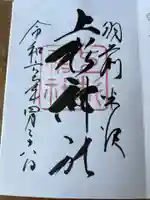 羽前米沢
上杉神社
令和六年四月二八日